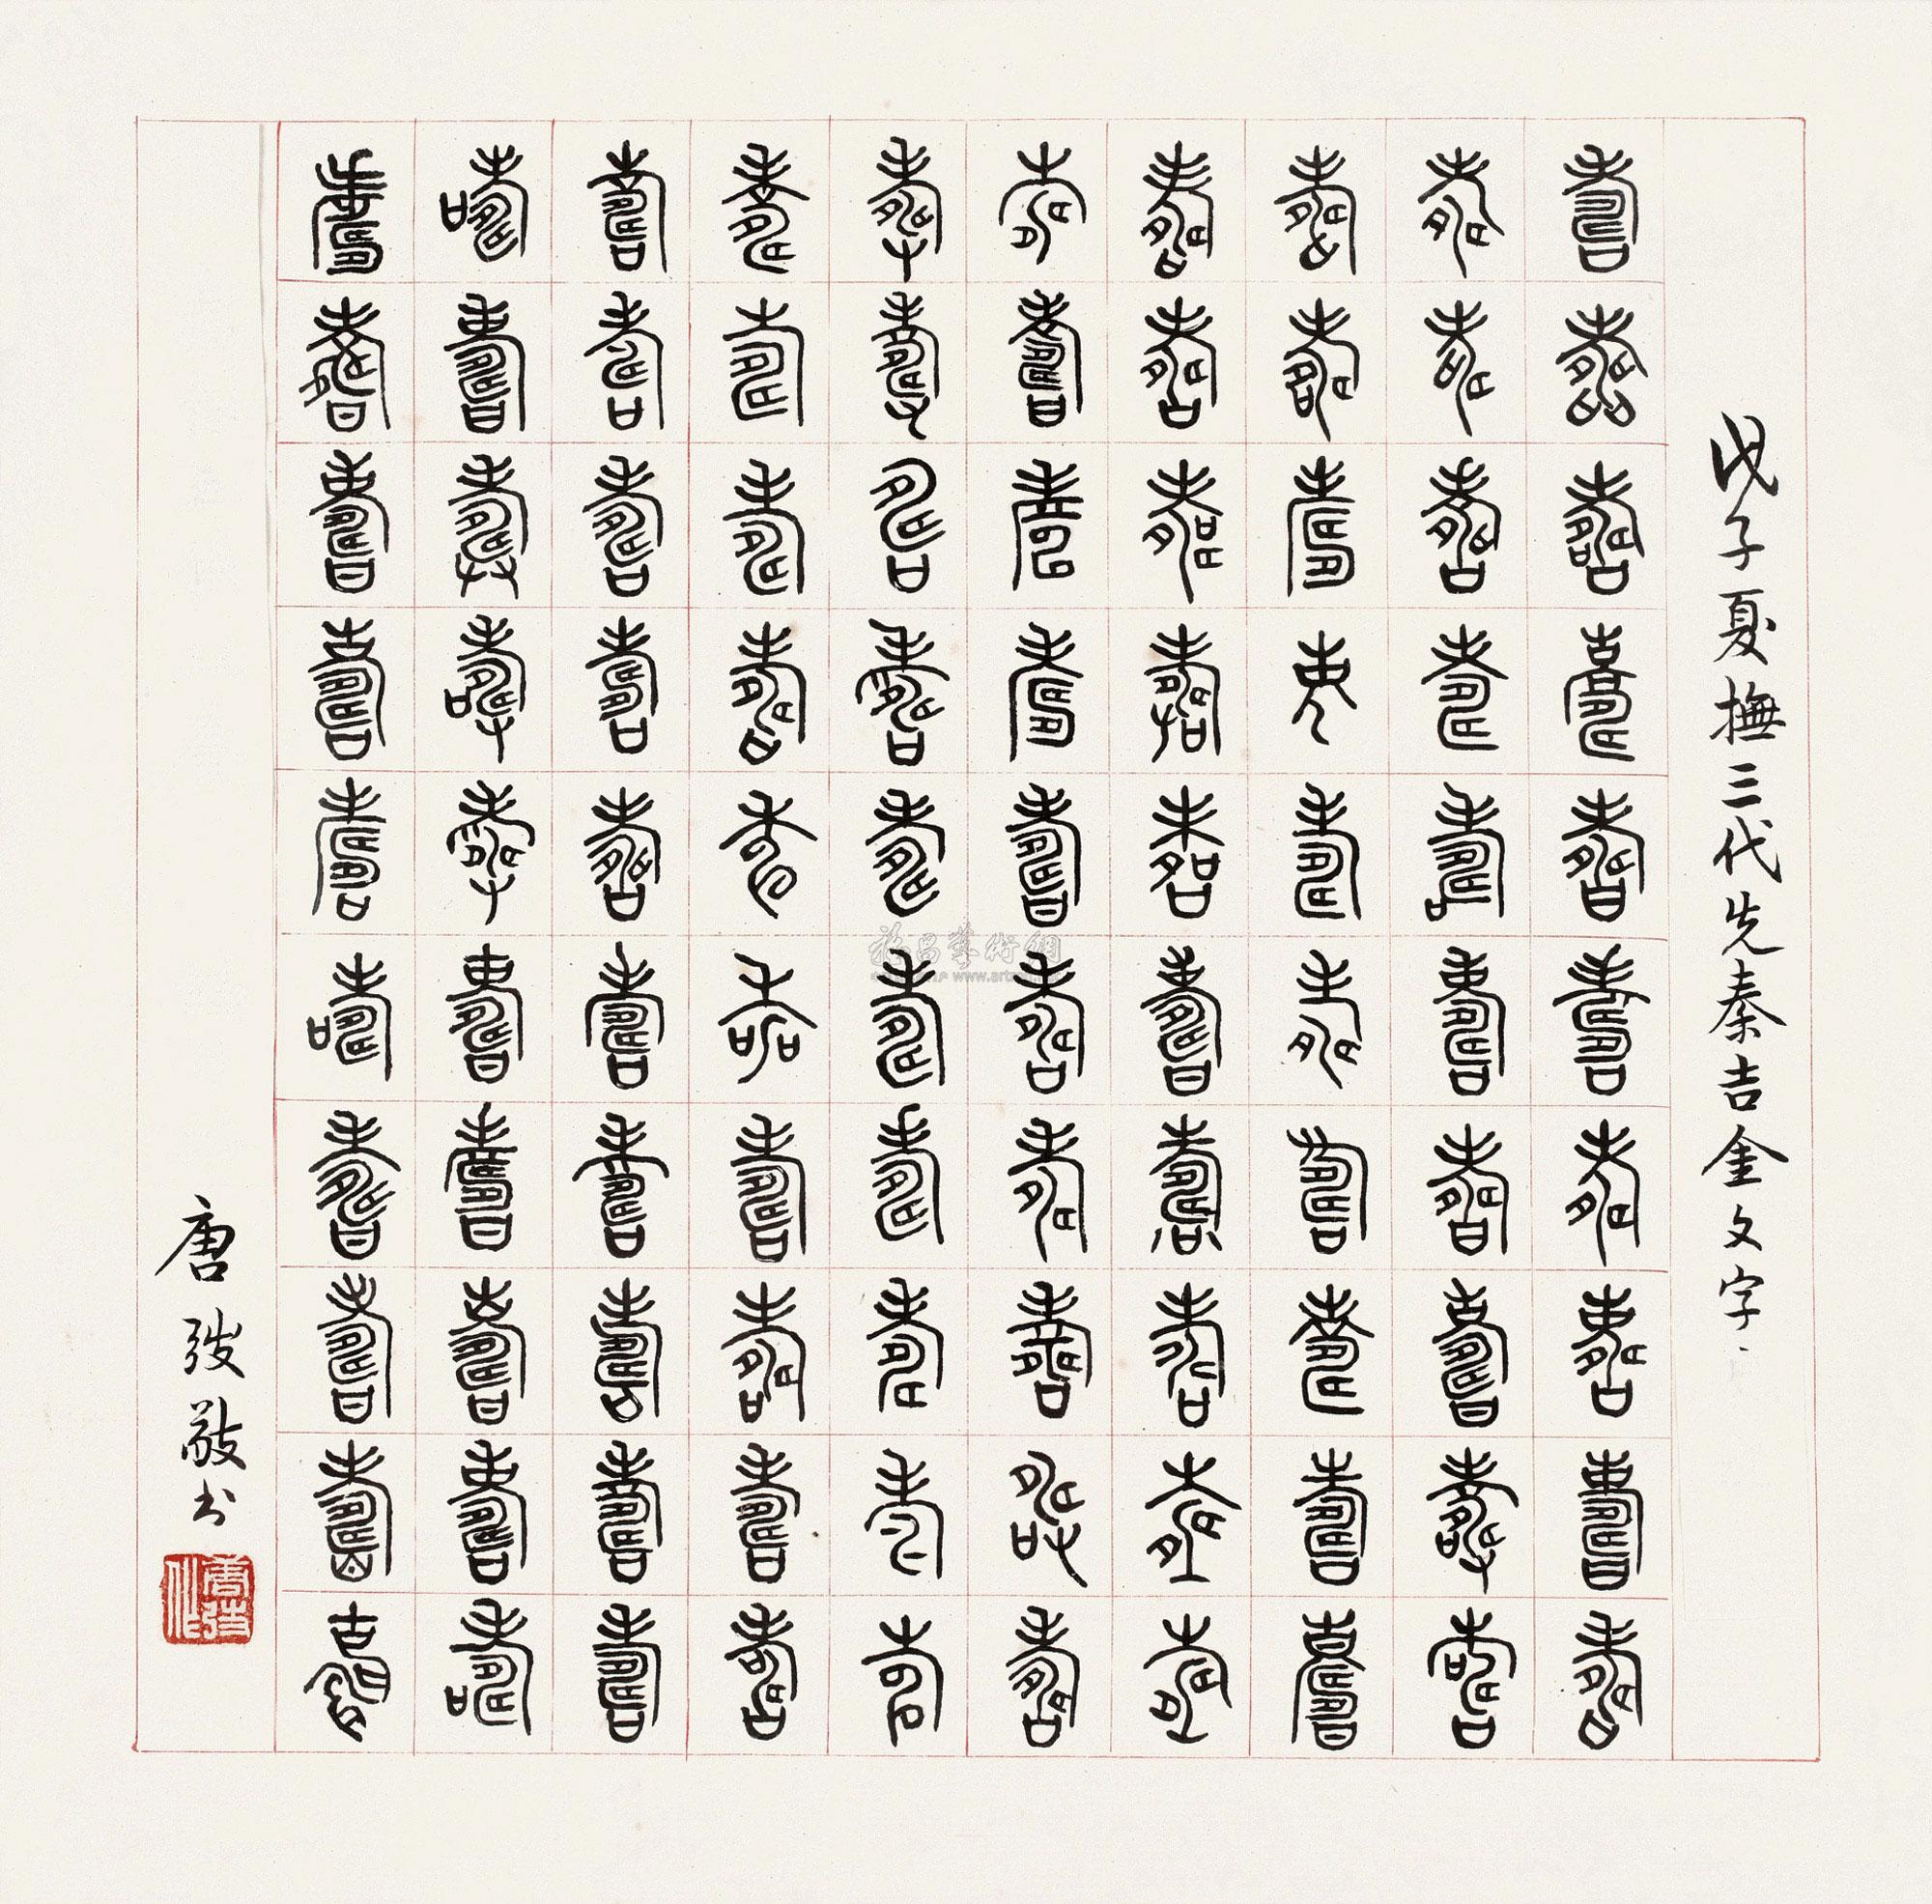 戊子夏撫三代先秦吉金文字
壽壽壽壽壽壽壽壽壽壽
壽壽壽壽壽壽壽壽壽壽
壽壽壽壽壽壽壽壽壽壽
壽壽壽壽壽壽壽壽壽壽
壽壽壽壽壽壽壽壽壽壽
壽壽壽壽壽壽壽壽壽壽
壽壽壽壽壽壽壽壽壽壽
壽壽壽壽壽壽壽壽壽壽
壽壽壽壽壽壽壽壽壽壽
壽壽壽壽壽壽壽壽壽壽
唐弢敬书